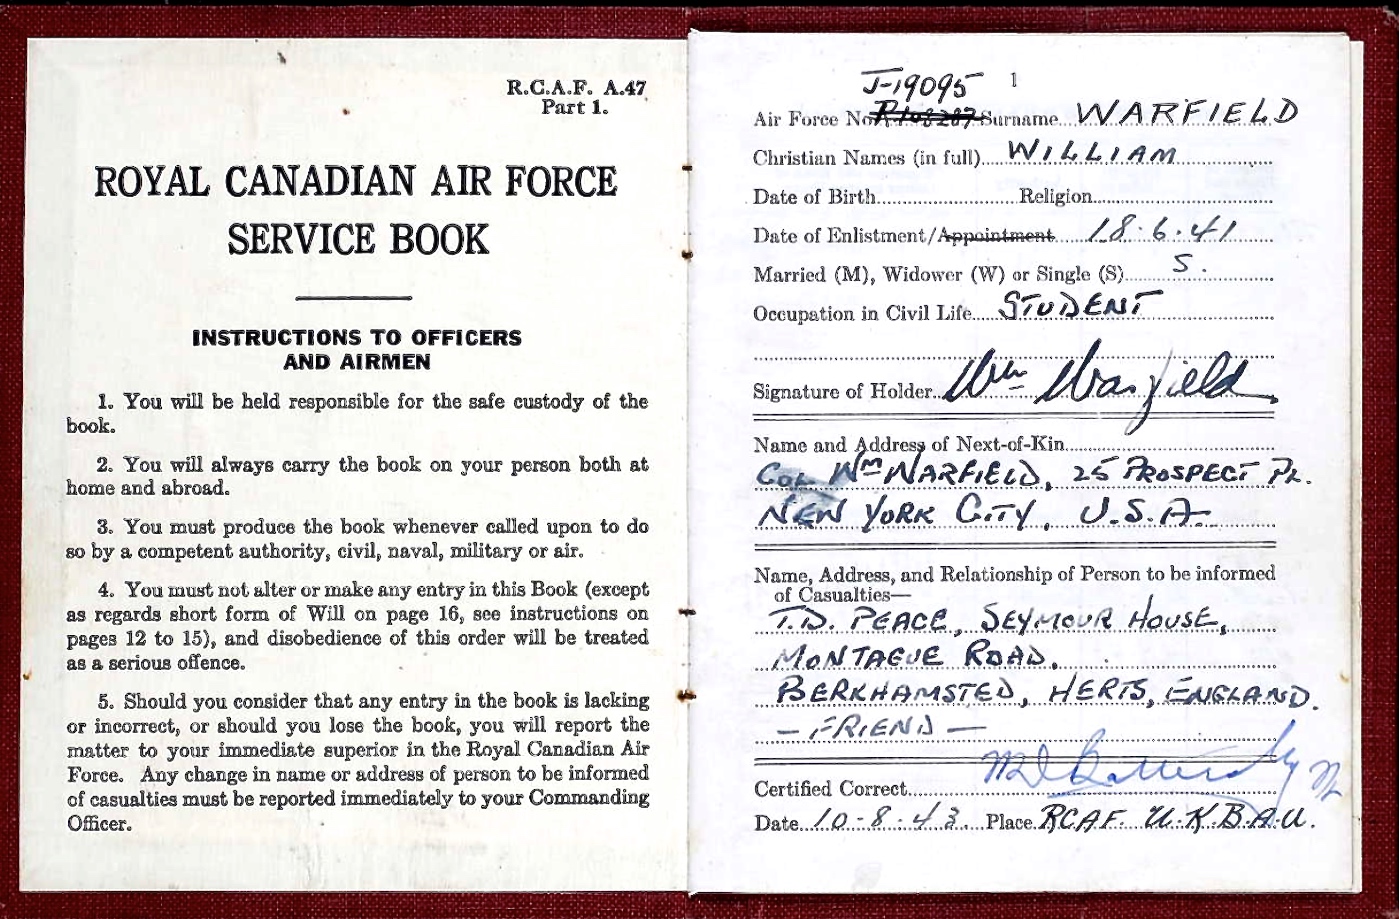 R.C.A.F. A.47
Part 1.
ROYAL CANADIAN AIR FORCE
SERVICE BOOK
INSTRUCTIONS TO OFFICERS
AND AIRMEN
1. You will be held responsible for the safe custody of the
book.
2. You will always carry the book on your person both at
home and abroad.
3. You must produce the book whenever called upon to do
so by a competent authority, civil, naval, military or air.
4. You must not alter or make any entry in this Book (except
as regards short form of Will on page 16, see instructions on
pages 12 to 15), and disobedience of this order will be treated
as a serious offence.
5. Should you consider that any entry in the book is lacking
or incorrect, or should you lose the book, you will report the
matter to your immediate superior in the Royal Canadian Air
Force. Any change in name or address of person to be informed
of casualties must be reported immediately to your Commanding
Officer.
J-19095 1
Air Force No Surname WARFIELD
Christian Names (in full) WILLIAM
Date of Birth Religion
Date of Enlistment/Appointment 18.6.41
Married (M), Widower (W) or Single (S) S.
Occupation in Civil Life STUDENT
Signature of Holder Wm Warfield
Name and Address of Next-of-Kin
COL WM WARFIELD, 25 PROSPECT PL.
NEW YORK CITY, U.S.A.
Name, Address, and Relationship of Person to be informed
of Casualties—
T.D. PEACE, SEYMOUR HOUSE,
MONTAGUE ROAD,
BERKHAMSTED, HERTS, ENGLAND.
— FRIEND —
Certified Correct
Date 10-8-43 Place RCAF U.K.B.A.U.